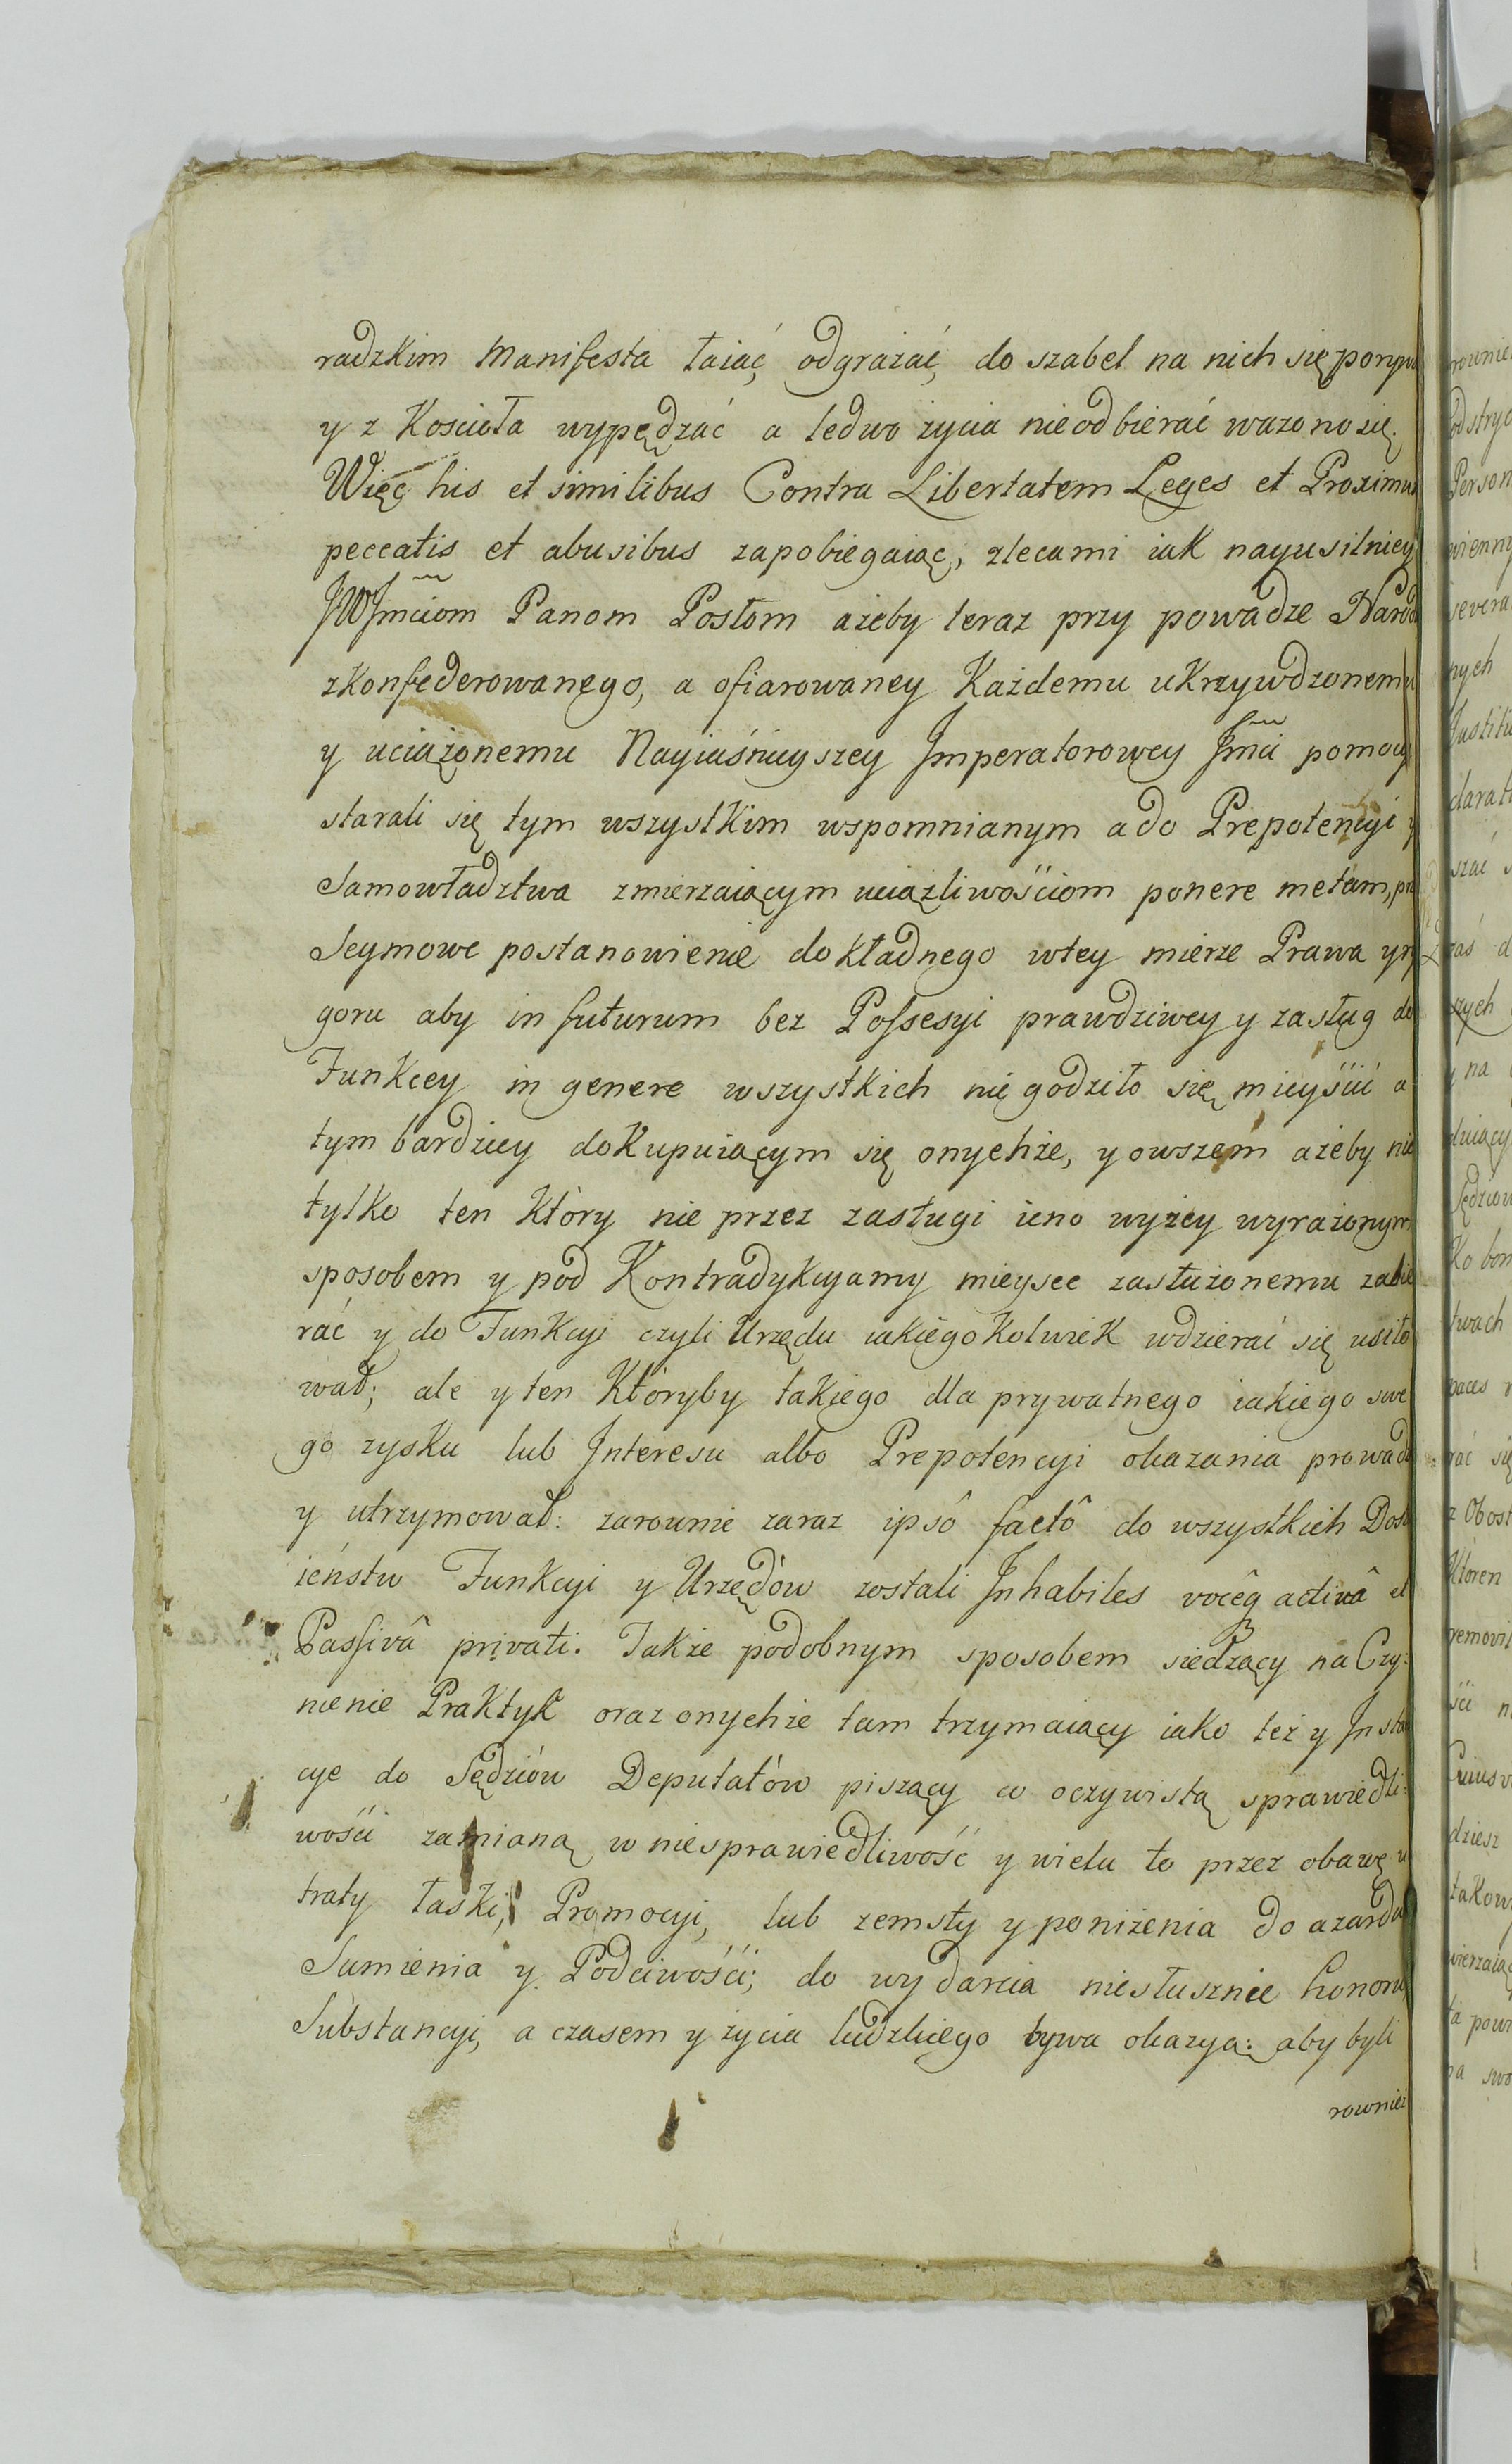 radzkim Manifesta łaiać, odgrażać, do szabel na nich się porywa
y z Kościoła wypędzać a ledwo życia nieodbierać ważono się.
Więc his et similibus Contra Libertatem Leges et Proximum
peccatis et abusibus zapobiegaiąc, zlecami iak nayusilniey
JWJmciom Panom Posłom ażeby teraz przy powadze Narod
zkonfederowanego, a ofiarowaney Każdemu ukrzywdzonemu
y uciążonemu Nayiaśnieyszey Jmperatorowey Jmci pomocy
starali się tym wszystkim wspomnianym a do Prepotencyi y
Samowładztwa zmierzaiącym uciążliwościom ponere metam, prz
Seymowe postanowienie dokładnego wtey mierze Prawa y ry
goru aby in futurum bez Possesyi prawdziwey y zasług do
Funkcey in genere wszystkich nie godziło się mieyścić a
tym bardziey dokupuiącym się onychże, y owszem ażeby nie
tylko ten który nie przez zasługi ieno wyżey wyrażonym
sposobem y pod Kontradykcyamy mieysce zasłużonemu zabie
rać y do Funkcyi czyli Urzędu iakiegokolwiek wdzierać się usiło
wał; ale y ten Któryby takiego dla prywatnego iakiego swe
go zysku lub Jnteresu albo Prepotencyi okazania prowadz
y utrzymował: zarownie zaraz ipsô factô do wszystkich Dosto
ieństw Funkcyi y Urzędów zostali Jnhabiles vocêq activâ et
Passivâ privati. Także podobnym sposobem siedzący na Czy:
nienie Praktyk oraz onychże tam trzymaiący iako też y Jnstan
cye do Sędziów Deputatów piszący co oczywistą sprawiedli:
wości zamianą w niesprawiedliwość y wielu to przez obawę u
traty łaski, Promocyi, lub zemsty y poniżenia do azardu
Sumienia y Podciwości; do wydarcia niesłusznie honoru
Substancyi, a czasem y życia ludzkiego bywa okazya: aby byli
rownież